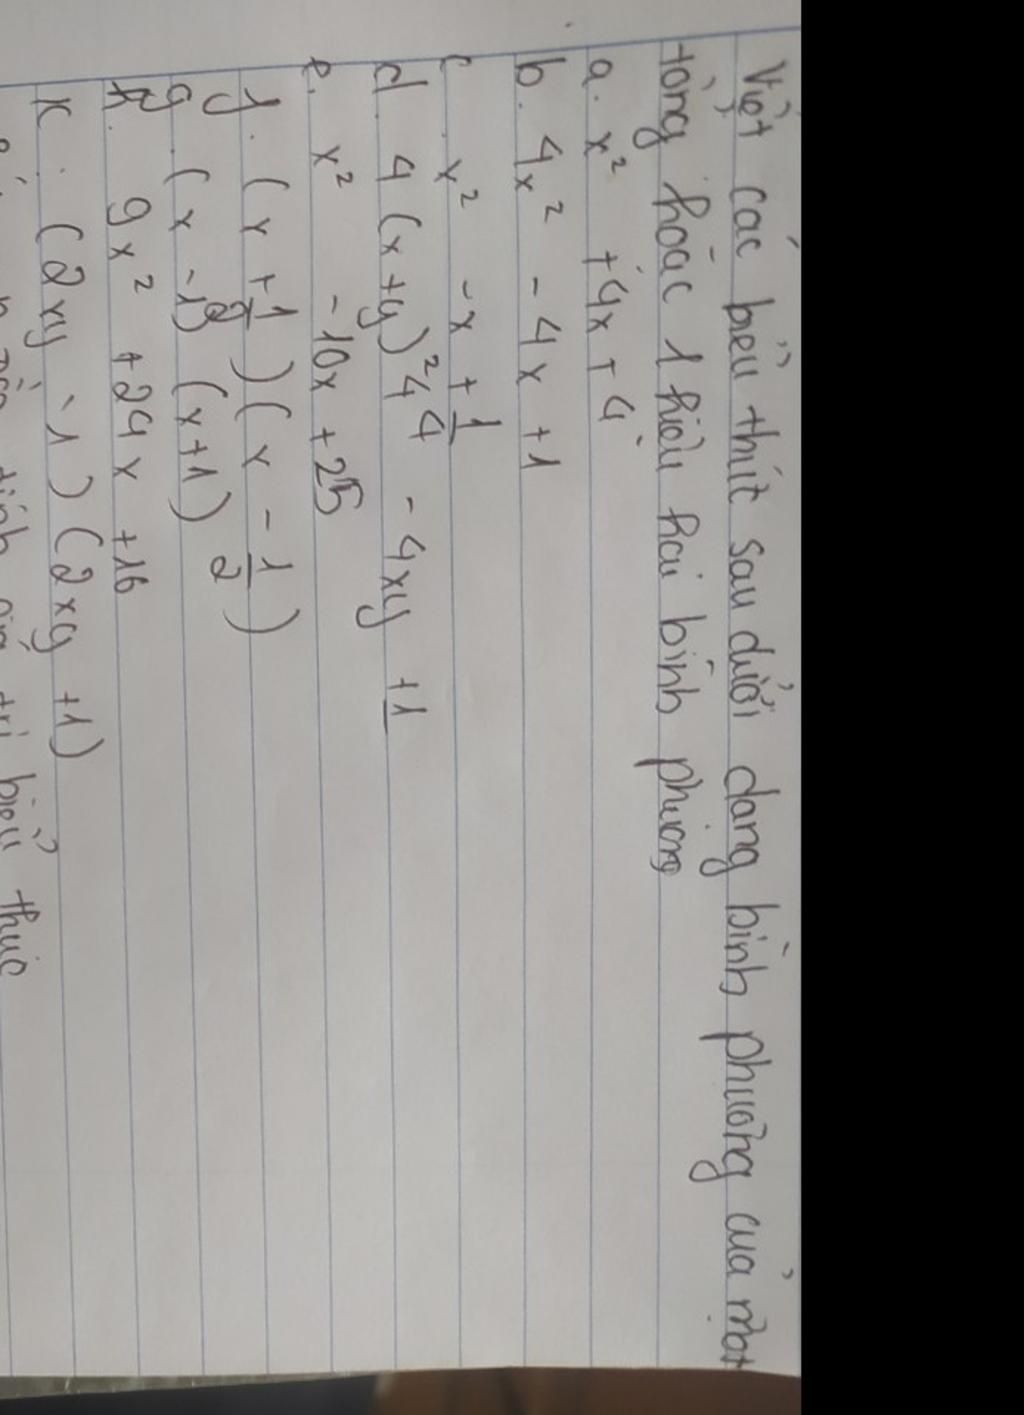 Viết các biểu thức sau dưới dạng bình phương của một
tổng hoặc 1 hiệu hai bình phương
a. x² + 4x + 4
b. 4x² - 4x + 1
c. x² - x + 1/4
d. 4(x+y)² - 4xy + 1
e. x² - 10x + 25
f. (x + 1/2)(x - 1/2)
g. (x - 1)(x+1)
h. 9x² + 24x + 16
k. (2xy - 1)(2xy + 1)
biểu thức